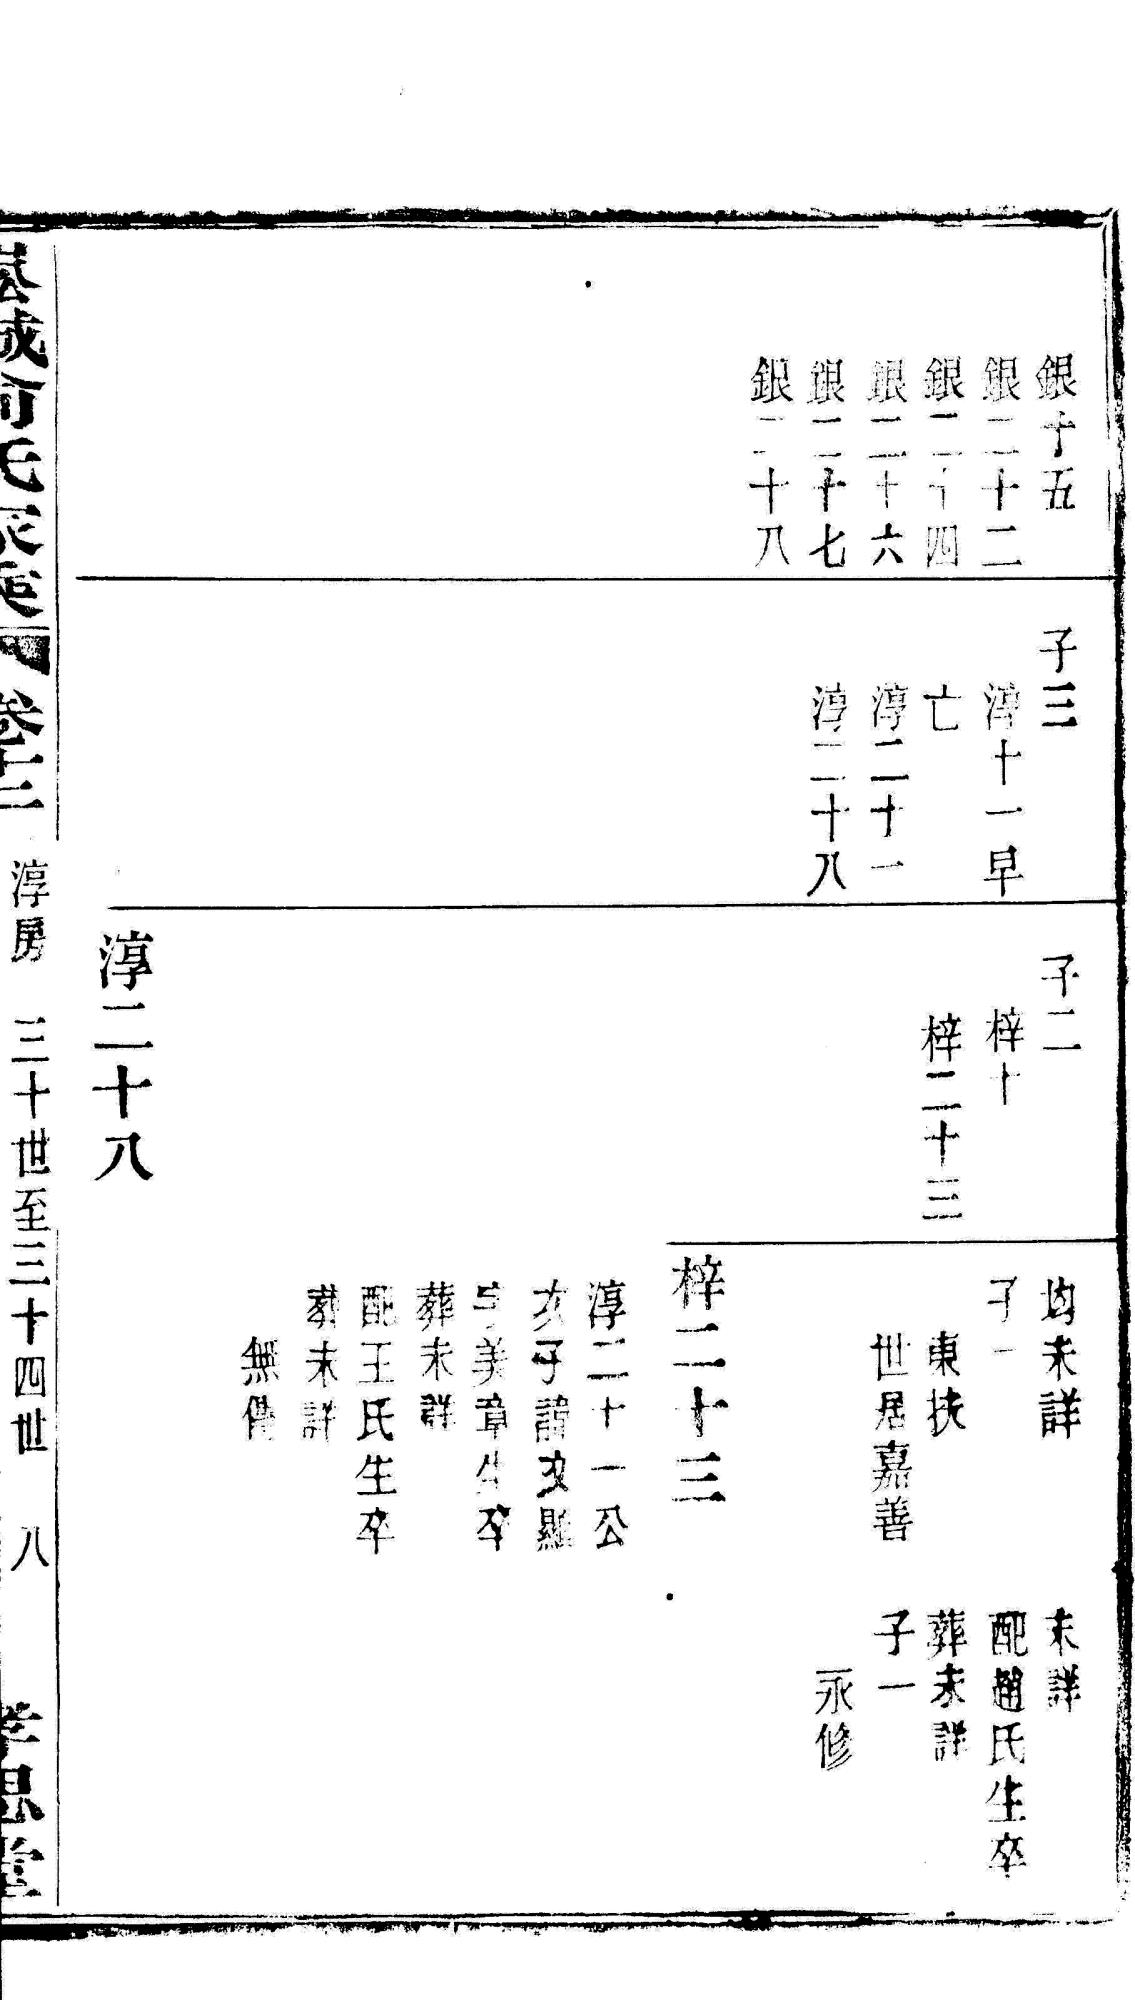 銀十五
銀二十二
銀二十四
銀二十六
銀二十七
銀二十八
子三
淳十一早
亡
淳二十一
淳二十八
子二
梓十
梓二十三
淳二十八
均未詳
子一
東扶
世居嘉善
梓二十三
淳二十一公
次子諱次顯
字美章生卒
葬未詳
配王氏生卒
葬未詳
無傳
未詳
配趙氏生卒
葬未詳
子一
永修
城俞氏家乘 卷十二 淳房 三十世至三十四世 八 孝思堂